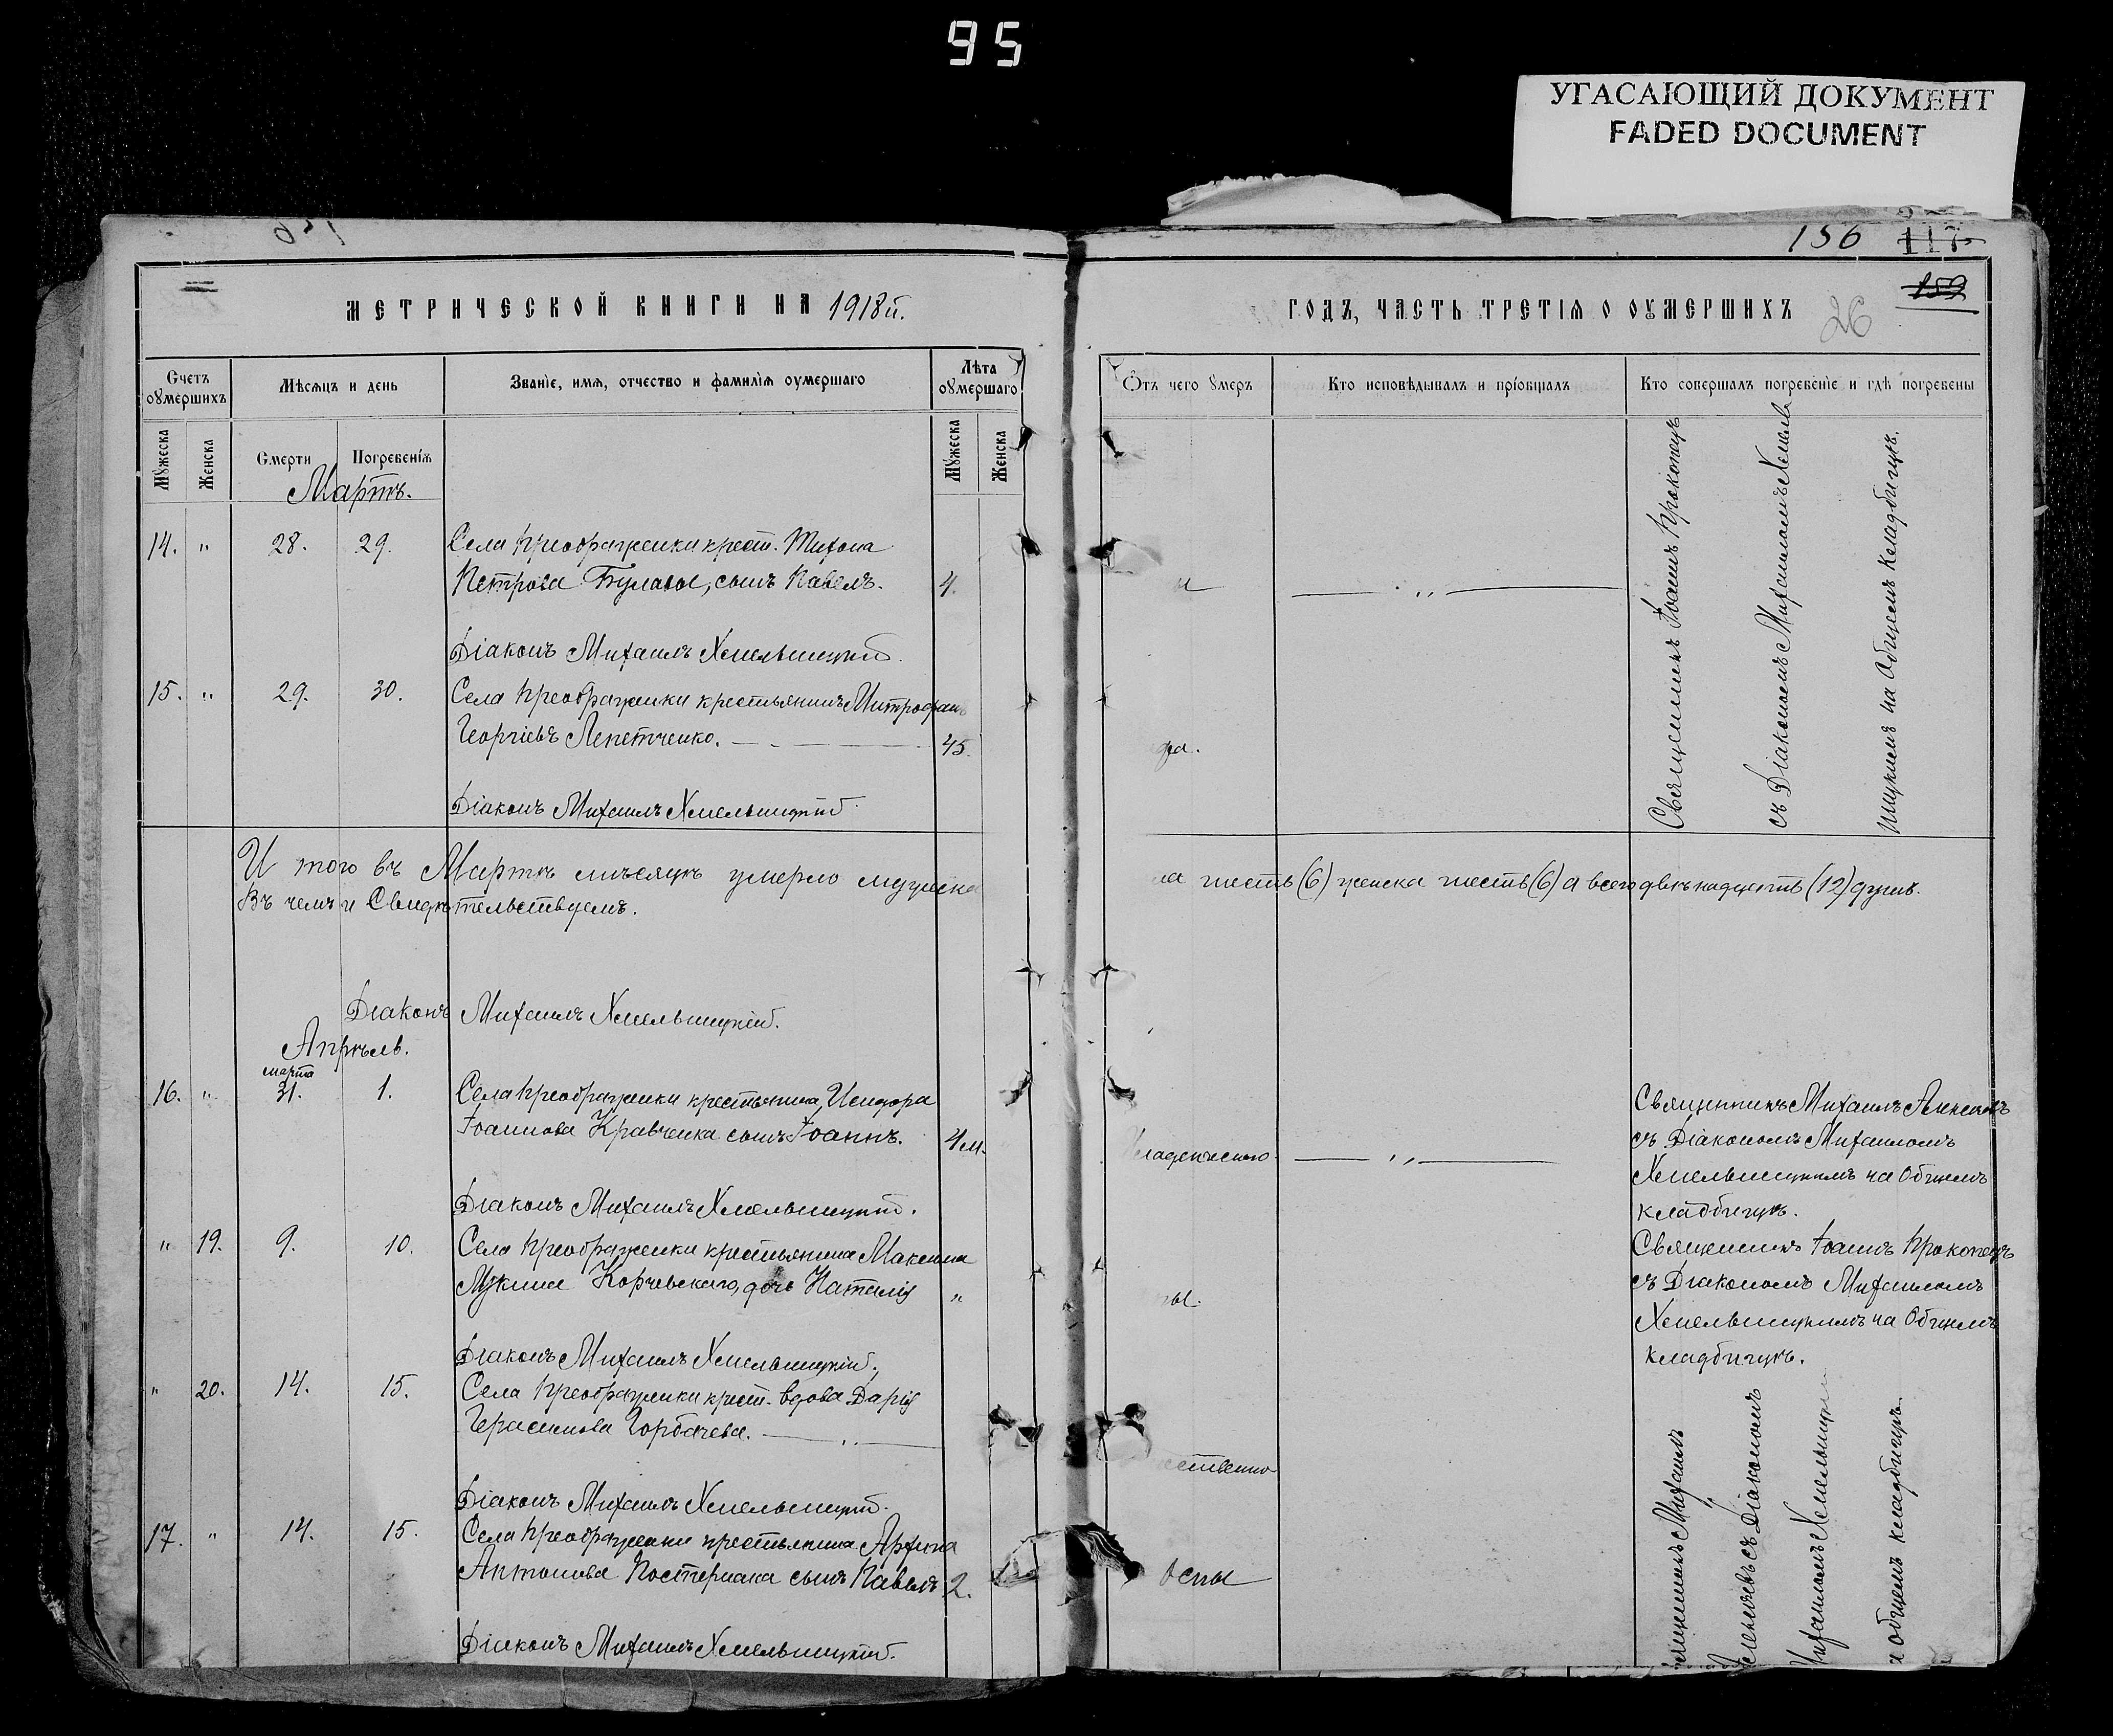 95
УГАСАЮЩИЙ ДОКУМЕНТ
FADED DOCUMENT
156 117
159
26
МЕТРИЧЕСКОЙ КНИГИ НА 1918й.
ГОДЪ, ЧАСТЬ ТРЕТІѦ О ОУМЕРШИХЪ
Счетъ оумершихъ
Мѣсѧцъ и день
Званіе, имѧ, отчество и фамиліѧ оумершаго
Лѣта оумершаго
Отъ чего умеръ
Кто исповѣдывалъ и пріобщалъ
Кто совершалъ погребеніе и гдѣ погребены
Мужеска
Женска
Смерти
Погребеніѧ
Мужеска
Женска
Мартъ.
14. " 28. 29. Села Преображенки крест. Тихона
Петрова Булавы, сынъ Павелъ. 4.
Діаконъ Михаилъ Хмельницкій.
15. " 29. 30. Села Преображенки крестьянинъ Митрофанъ
Георгіевъ Лепетченко. 45.
Діаконъ Михаилъ Хмельницкій
Священникъ Іоаннъ Прокопецъ
съ Діакономъ Михаиломъ Хмель
ницкимъ на Общемъ кладбищѣ.
И того въ Мартѣ мѣсяцѣ умерло мужеска
на шесть (6) женска шесть (6) а всего двѣнадцать (12) душъ.
Въ чемъ и Свидѣтельствуемъ.
Діаконъ Михаилъ Хмельницкій.
Апрѣль.
марта
16. " 31. 1. Села Преображенки крестьянина Исидора
Іоаннова Кравченка сынъ Іоаннъ. 4 м.
младенческаго
Діаконъ Михаилъ Хмельницкій.
Священникъ Михаилъ
съ Діакономъ Михаиломъ
Хмельницкимъ на Общемъ
кладбищѣ.
" 19. 9. 10. Села Преображенки крестьянина Максима
Лукина Корчевскаго, дочь Наталія "
Діаконъ Михаилъ Хмельницкій.
Священникъ Іоаннъ Прокопецъ
съ Діакономъ Михаиломъ
Хмельницкимъ на Общемъ
кладбищѣ.
" 20. 14. 15. Села Преображенки крест. вдова Дарія
Герасимова Горбачева.
ественно
Діаконъ Михаилъ Хмельницкій.
17. " 14. 15. Села Преображенки крестьянина
Антонова Постернака сынъ Павелъ 2.
оспы
Діаконъ Михаилъ Хмельницкій.
Михаилъ
съ Діакономъ
Михаиломъ Хмельницки
общемъ кладбищѣ.